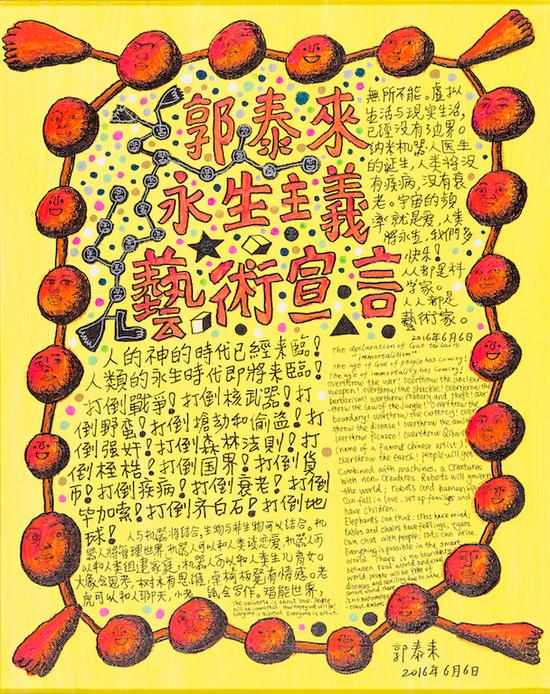 郭泰來
永生主義
藝術宣言
無所不能。虛拟
生活与現实生活,
已經没有边界。
纳米机器人医生
的诞生,人类将没
有疾病,没有衰
老。宇宙的頻
率就是爱,人类
将永生,我們多
快乐!
人人都是科
学家。
人人都是
藝術家。
2016年6月6日
人的神的時代已經来臨!
人類的永生時代即將来臨!
打倒戰爭!打倒核武器!打
倒野蛮!打倒搶劫和偷盗!打
倒强奸!打倒森林法則!打
倒桎梏!打倒国界!打倒貨
币!打倒疾病!打倒衰老!打倒
毕加索!打倒齐白石!打倒地
球!
人与机器将结合,生物与非生物可以结合。机
器人将管理世界,机器人可以和人类谈恋爱,机器人可
以和人类组建家庭,机器人可以和人类生儿育女。
大象会思考,树木有思維,桌椅板凳有情感。老
虎可以和人聊天,小老鼠会写作。智能世界,
The declaration of Guo Tailai's
"immortalism"
The age of God of people has coming!
The age of immortality has coming!
overthrow the war! overthrow the nuclear
weapon! overthrow the shackles! overthrow the
barbarism! overthrow robbery and theft! over
throw the law of the jungle! overthrow the
boundary! overthrow the currency! over
throw the disease! overthrow the
overthrow Picasso! overthrow Qibaishi
(name of a famous chinese artist)!
overthrow the earth! people will get
combined with machines, creatures
with non-creatures. Robots will govern
the world; robots and human beings
can fall in love, set up families
have children.
Elephants can think; trees have mind;
tables and chairs have feelings; tigers
can chat with people; rats can write.
Everything is possible in the smart
world. There is no boundary
between real world and
郭泰来
2016年6月6日